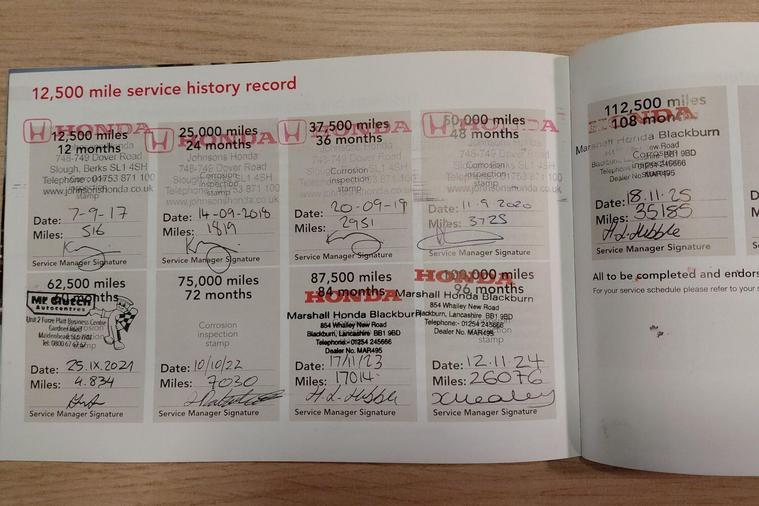 12,500 mile service history record
HONDA
12,500 miles
12 months
748-749 Dover Road
Slough, Berks SL1 4SH
Telephone: 01753 871 100
www.johnsonshonda.co.uk
stamp
Date: 7-9-17
Miles: 516
Service Manager Signature
HONDA
25,000 miles
24 months
Johnsons Honda
748-749 Dover Road
Corrosion
inspection
stamp
Date: 14-09-2018
Miles: 1819
Service Manager Signature
HONDA
37,500 miles
36 months
Corrosion
inspection
stamp
Date: 20-09-19
Miles: 2951
Service Manager Signature
HONDA
50,000 miles
48 months
Corrosion
inspection
stamp
Date: 11.9.2020
Miles: 3725
Service Manager Signature
62,500 miles
60 months
Mr Clutch
Autocentres
Unit 2 Furze Platt Business Centre
Gardner Road
Date: 25.IX.2021
Miles: 4.834
Service Manager Signature
75,000 miles
72 months
Corrosion
inspection
stamp
Date: 10/10/22
Miles: 7030
Service Manager Signature
87,500 miles
84 months
HONDA
Marshall Honda Blackburn
854 Whalley New Road
Blackburn, Lancashire BB1 9BD
Telephone:- 01254 245666
Dealer No. MAR495
Date: 17/11/23
Miles: 17014
Service Manager Signature
HONDA
100,000 miles
96 months
Marshall Honda Blackburn
854 Whalley New Road
Blackburn, Lancashire BB1 9BD
Telephone:- 01254 245666
Dealer No. MAR495
stamp
Date: 12.11.24
Miles: 26076
Service Manager Signature
112,500 miles
108 months
Marshall Honda Blackburn
BB1 9BD
01254 245666
Dealer No. MAR495
Date: 18.11.25
Miles: 35185
Service Manager Signature
All to be completed and endors
For your service schedule please refer to your s